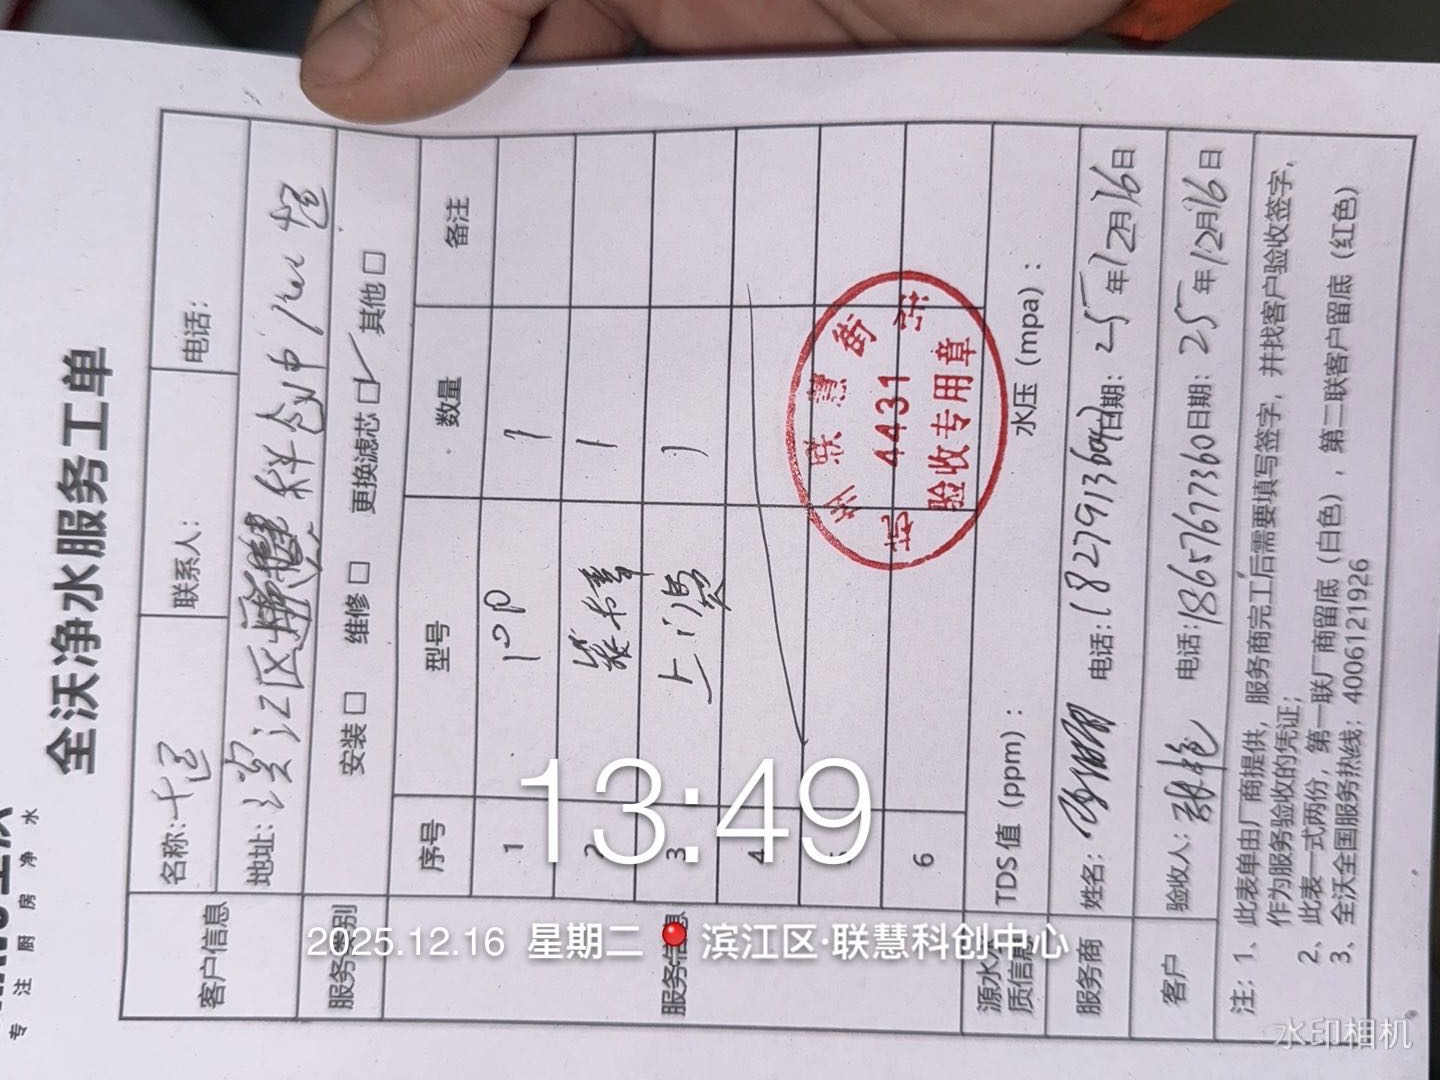 专注厨房净水
全沃净水服务工单
客户信息
名称：七匠 联系人： 电话：
地址：滨江区联慧科创中心
服务类别
安装□ 维修□ 更换滤芯□✓ 其他□
服务信息
序号 型号 数量 备注
1 1
2 1
3 上门费 1
4
6
杭州联慧街店
4431
验收专用章
源水水质信息
TDS值（ppm）： 水压（mpa）：
服务商 姓名： 电话： 日期：25年12月16日
客户 验收人： 电话：18657617360 日期：25年12月16日
注：1、此表单由厂商提供，服务商完工后需要填写签字，并找客户验收签字，
作为服务验收的凭证；
2、此表一式两份，第一联厂商留底（白色），第二联客户留底（红色）
3、全沃全国服务热线：4006121926
13:49
2025.12.16 星期二 滨江区·联慧科创中心
水印相机